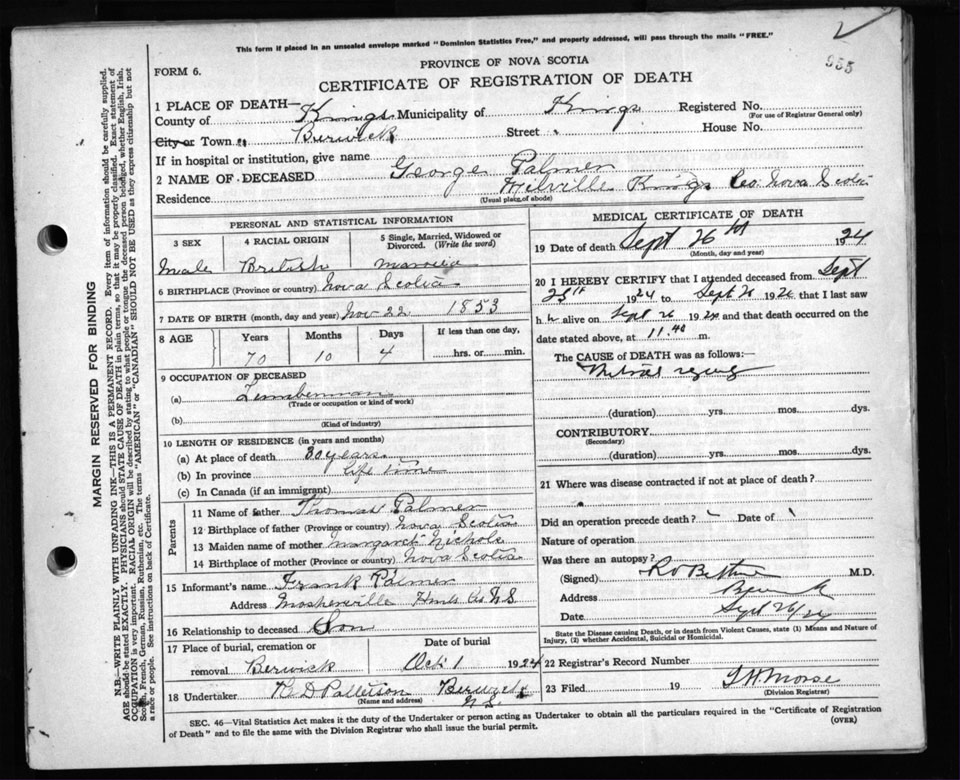 This form if placed in an unsealed envelope marked "Dominion Statistics Free," and property addressed, will pass through the mails "FREE."
955
PROVINCE OF NOVA SCOTIA
FORM 6.
CERTIFICATE OF REGISTRATION OF DEATH
1 PLACE OF DEATH—
County of Kings Municipality of Kings Registered No.
(For use of Registrar General only)
City or Town Berwick Street House No.
If in hospital or institution, give name
2 NAME OF DECEASED George Palmer
Residence Melville Kings Co. Nova Scotia
(Usual place of abode)
PERSONAL AND STATISTICAL INFORMATION
3 SEX 4 RACIAL ORIGIN 5 Single, Married, Widowed or Divorced. (Write the word)
Male British Married
6 BIRTHPLACE (Province or country) Nova Scotia
7 DATE OF BIRTH (month, day and year) Nov 22 1853
8 AGE Years Months Days If less than one day,
70 10 4 hrs. or min.
9 OCCUPATION OF DECEASED
(a) Lumberman
(Trade or occupation or kind of work)
(b)
(Kind of industry)
10 LENGTH OF RESIDENCE (in years and months)
(a) At place of death 30 years
(b) In province life time
(c) In Canada (if an immigrant)
Parents
11 Name of father Thomas Palmer
12 Birthplace of father (Province or country) Nova Scotia
13 Maiden name of mother Margaret Nichols
14 Birthplace of mother (Province or country) Nova Scotia
15 Informant's name Frank Palmer
Address Mosherville Hants Co N S
16 Relationship to deceased Son
17 Place of burial, cremation or removal Berwick Date of burial Oct 1 1924
18 Undertaker D Patterson Berwick N.S.
(Name and address)
MEDICAL CERTIFICATE OF DEATH
19 Date of death Sept 26th 1924
(Month, day and year)
20 I HEREBY CERTIFY that I attended deceased from Sept
25th 1924 to Sept 26 1924 that I last saw
h alive on Sept 26 1924 and that death occurred on the
date stated above, at 11.40 m.
The CAUSE of DEATH was as follows:—
Mitral regurg
(duration) yrs. mos. dys.
CONTRIBUTORY
(Secondary)
(duration) yrs. mos. dys.
21 Where was disease contracted if not at place of death?
Did an operation precede death? Date of
Nature of operation
Was there an autopsy?
(Signed) M.D.
Address Berwick
Date Sept 26/24
State the Disease causing Death, or in death from Violent Causes, state (1) Means and Nature of
Injury, (2) whether Accidental, Suicidal or Homicidal.
22 Registrar's Record Number
23 Filed 19 Morse
(Division Registrar)
SEC. 46—Vital Statistics Act makes it the duty of the Undertaker or person acting as Undertaker to obtain all the particulars required in the "Certificate of Registration
of Death" and to file the same with the Division Registrar who shall issue the burial permit. (OVER)
MARGIN RESERVED FOR BINDING
N.B.—WRITE PLAINLY WITH UNFADING INK—THIS IS A PERMANENT RECORD. Every item of information should be carefully supplied.
AGE should be stated EXACTLY. PHYSICIANS should STATE CAUSE OF DEATH in plain terms, so that it may be properly classified. Exact statement of
OCCUPATION is very important. RACIAL ORIGIN will be described by stating to what people or tongue the deceased person belonged, whether English, Irish,
Scotch, French, German, Russian, Ruthenian, etc. The terms "AMERICAN" or "CANADIAN" SHOULD NOT BE USED as they express citizenship but not
a race or people. See instructions on back of Certificate.